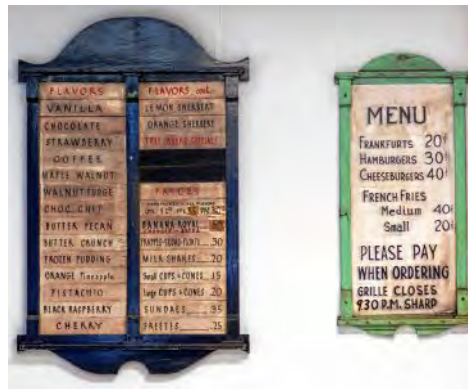 FLAVORS
VANILLA
CHOCOLATE
STRAWBERRY
COFFEE
MAPLE WALNUT
WALNUT FUDGE
CHOC. CHIP
BUTTER PECAN
BUTTER CRUNCH
FROZEN PUDDING
ORANGE Pineapple
PISTACHIO
BLACK RASPBERRY
CHERRY
FLAVORS cont.
LEMON SHERBERT
ORANGE SHERBERT
PRICES
BANANA ROYAL
FRAPPES-SODAS-FLOATS 30
MILK SHAKES 20
Small CUPS & CONES 15
Large CUPS & CONES 20
SUNDAES 35
FREEZES 25
MENU
FRANKFURTS 20¢
HAMBURGERS 30¢
CHEESEBURGERS 40¢
FRENCH FRIES
Medium 40¢
Small 20¢
PLEASE PAY
WHEN ORDERING
GRILLE CLOSES
9:30 P.M. SHARP